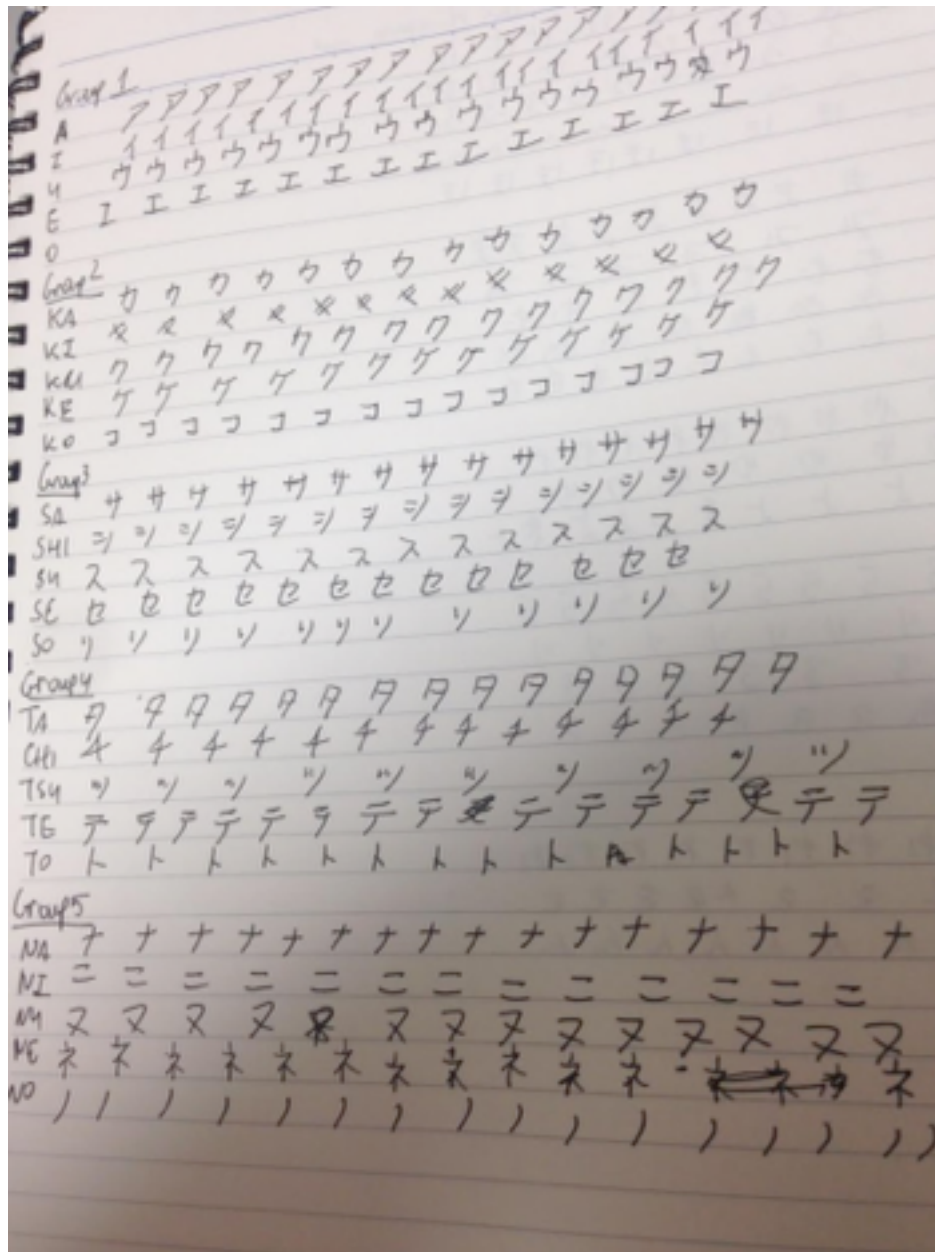 Group 1
A アアアアアアアアアアアアアア
I イイイイイイイイイイイイイイイイイ
U ウウウウウウウウウウウウウウウ
E エエエエエエエエエエエエエ
O
Group 2
KA カカカカカカカカカカカカカ
KI キキキキキキキキキキキキ
KU クククククククククククククク
KE ケケケケケケケケケケケケケ
KO ココココココココココココココ
Group 3
SA ササササササササササササササ
SHI シシシシシシシシシシシシシシ
SU ススススススススススススス
SE セセセセセセセセセセセセ
SO ソソソソソソソソソソソソ
Group 4
TA タタタタタタタタタタタタタタ
CHI チチチチチチチチチチチチチ
TSU ツツツツツツツツツツ
TE テテテテテテテテテテテテテテ
TO トトトトトトトトトトトトト
Group 5
NA ナナナナナナナナナナナナナナナ
NI ニニニニニニニニニニニニニ
NU ヌヌヌヌヌヌヌヌヌヌヌヌヌ
NE ネネネネネネネネネネネネ
NO ノノノノノノノノノノノノノノノノ